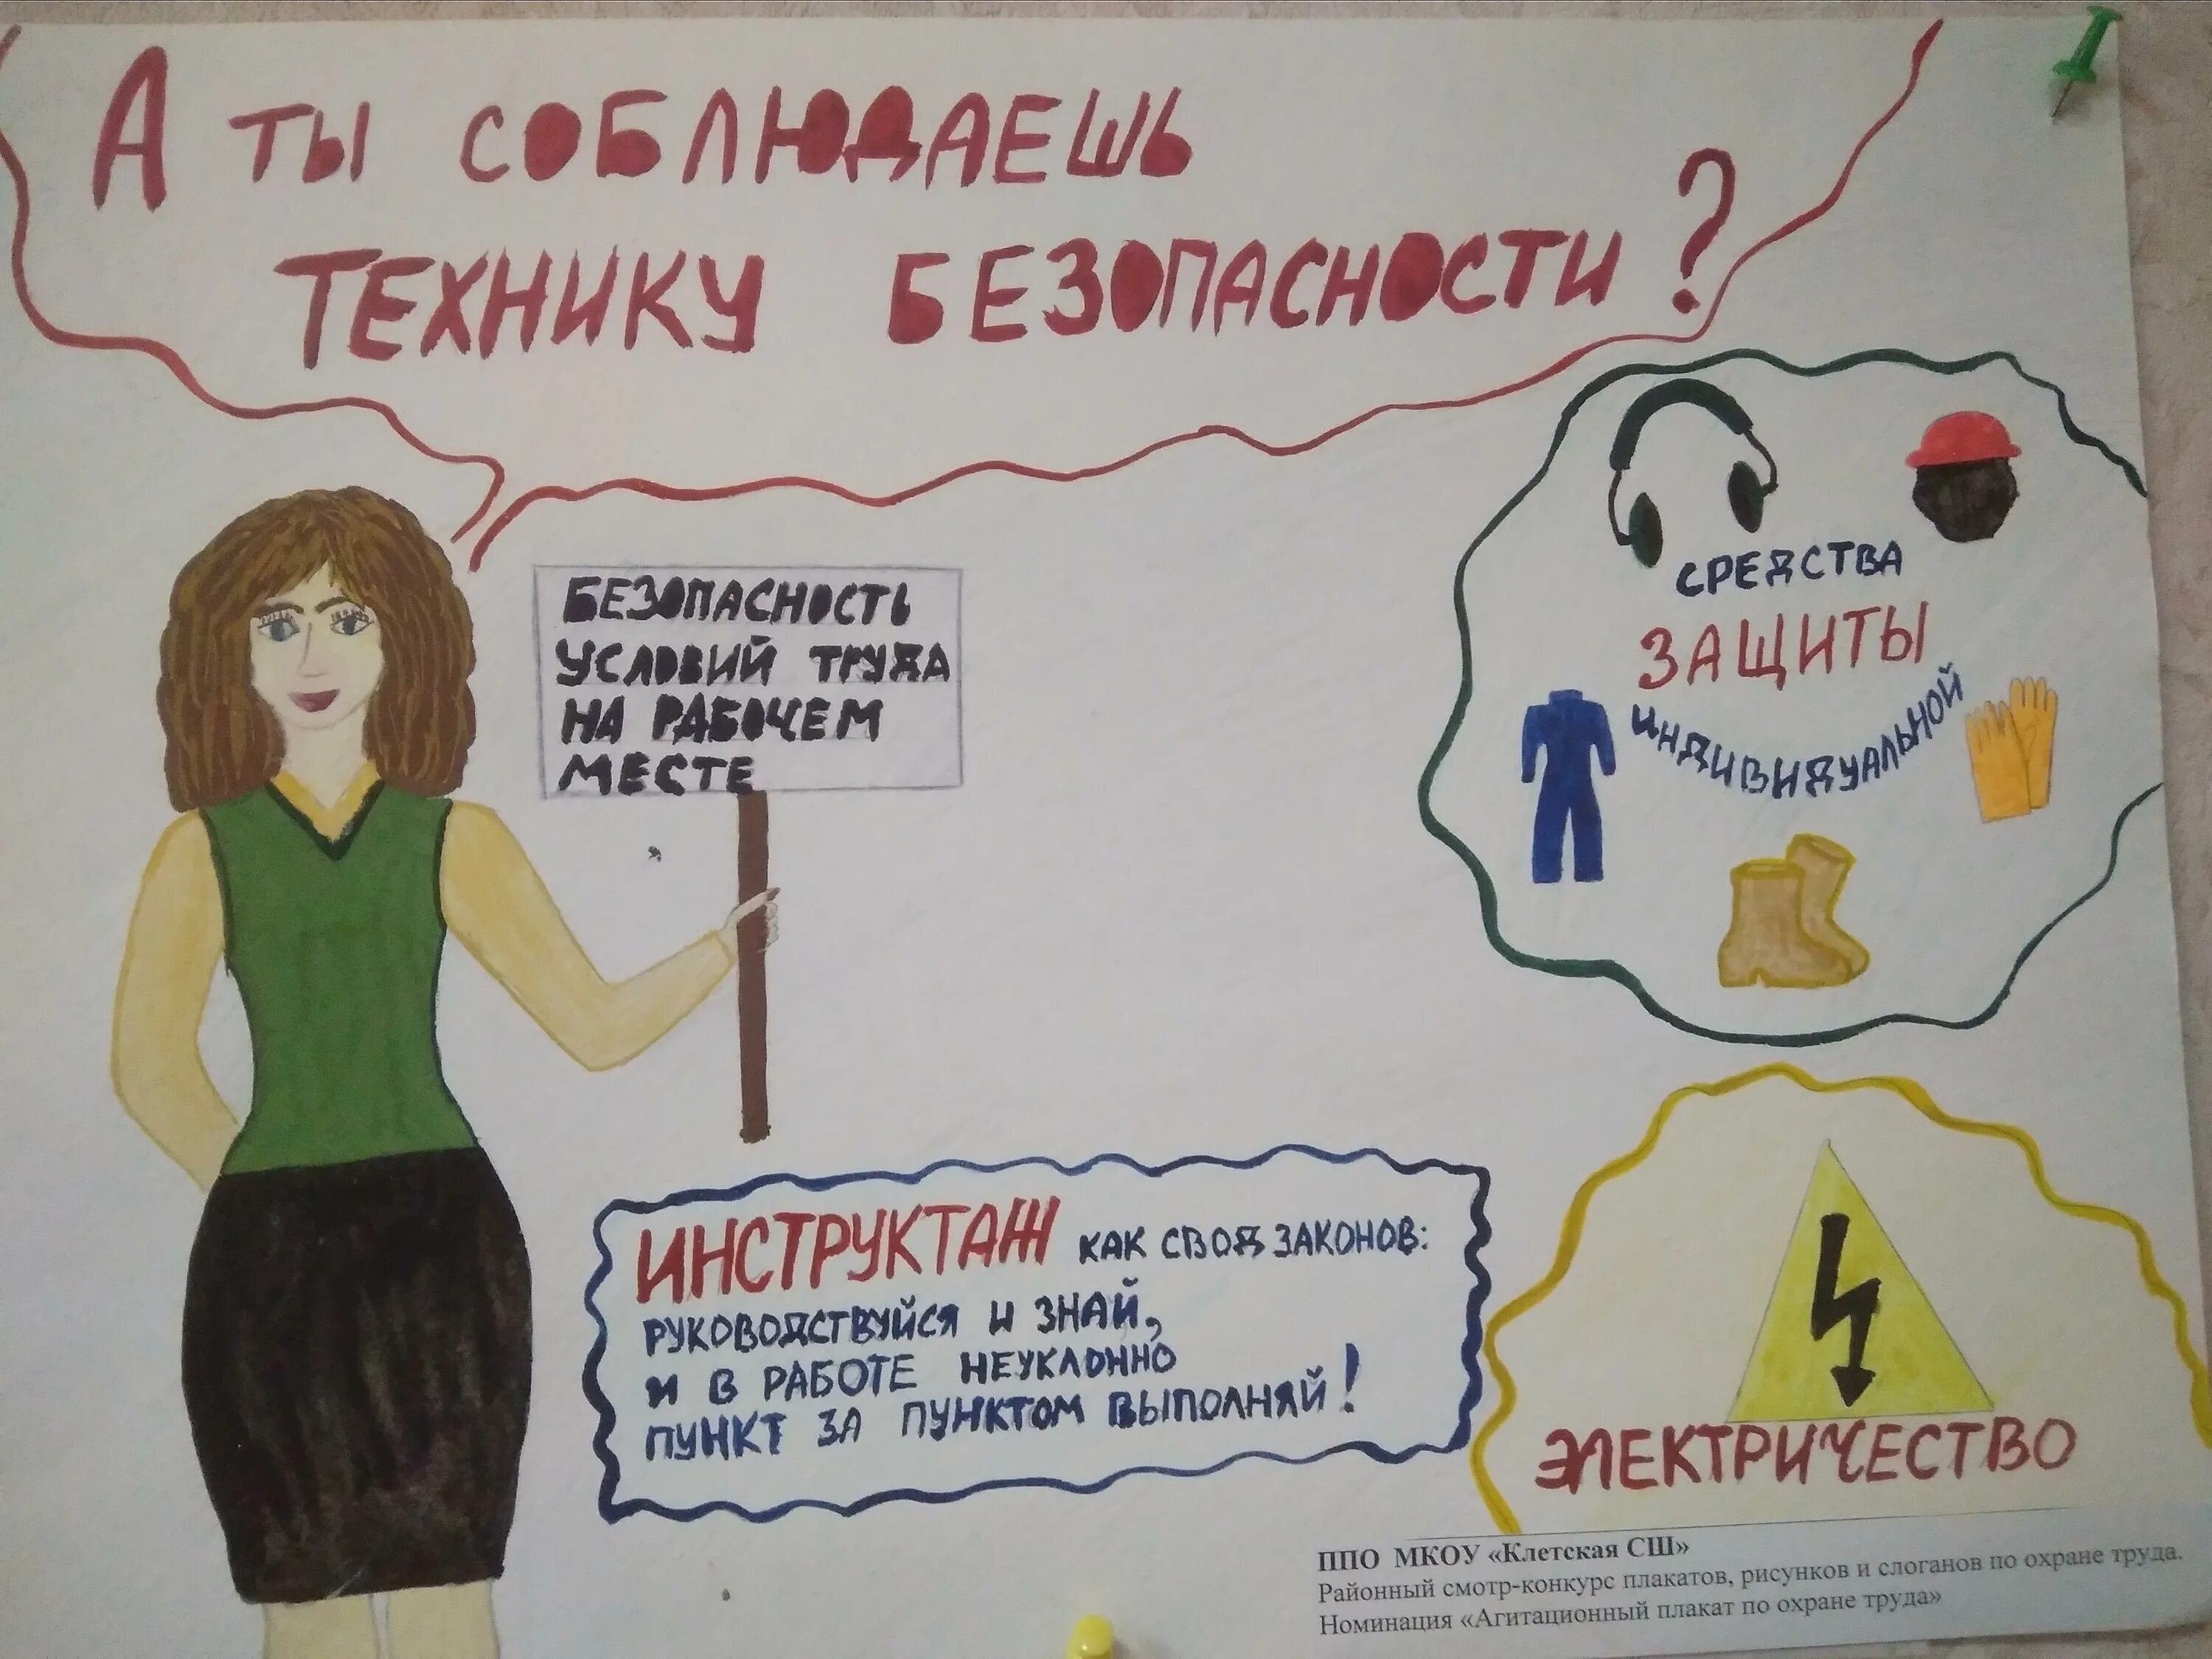 А ТЫ СОБЛЮДАЕШЬ
ТЕХНИКУ БЕЗОПАСНОСТИ?
БЕЗОПАСНОСТЬ
УСЛОВИЙ ТРУДА
НА РАБОЧЕМ
МЕСТЕ
СРЕДСТВА
ЗАЩИТЫ
ИНДИВИДУАЛЬНОЙ
ИНСТРУКТАЖ КАК СВОД ЗАКОНОВ:
РУКОВОДСТВУЙСЯ И ЗНАЙ,
И В РАБОТЕ НЕУКЛОННО
ПУНКТ ЗА ПУНКТОМ ВЫПОЛНЯЙ!
ЭЛЕКТРИЧЕСТВО
ППО МКОУ «Клетская СШ»
Районный смотр-конкурс плакатов, рисунков и слоганов по охране труда.
Номинация «Агитационный плакат по охране труда»